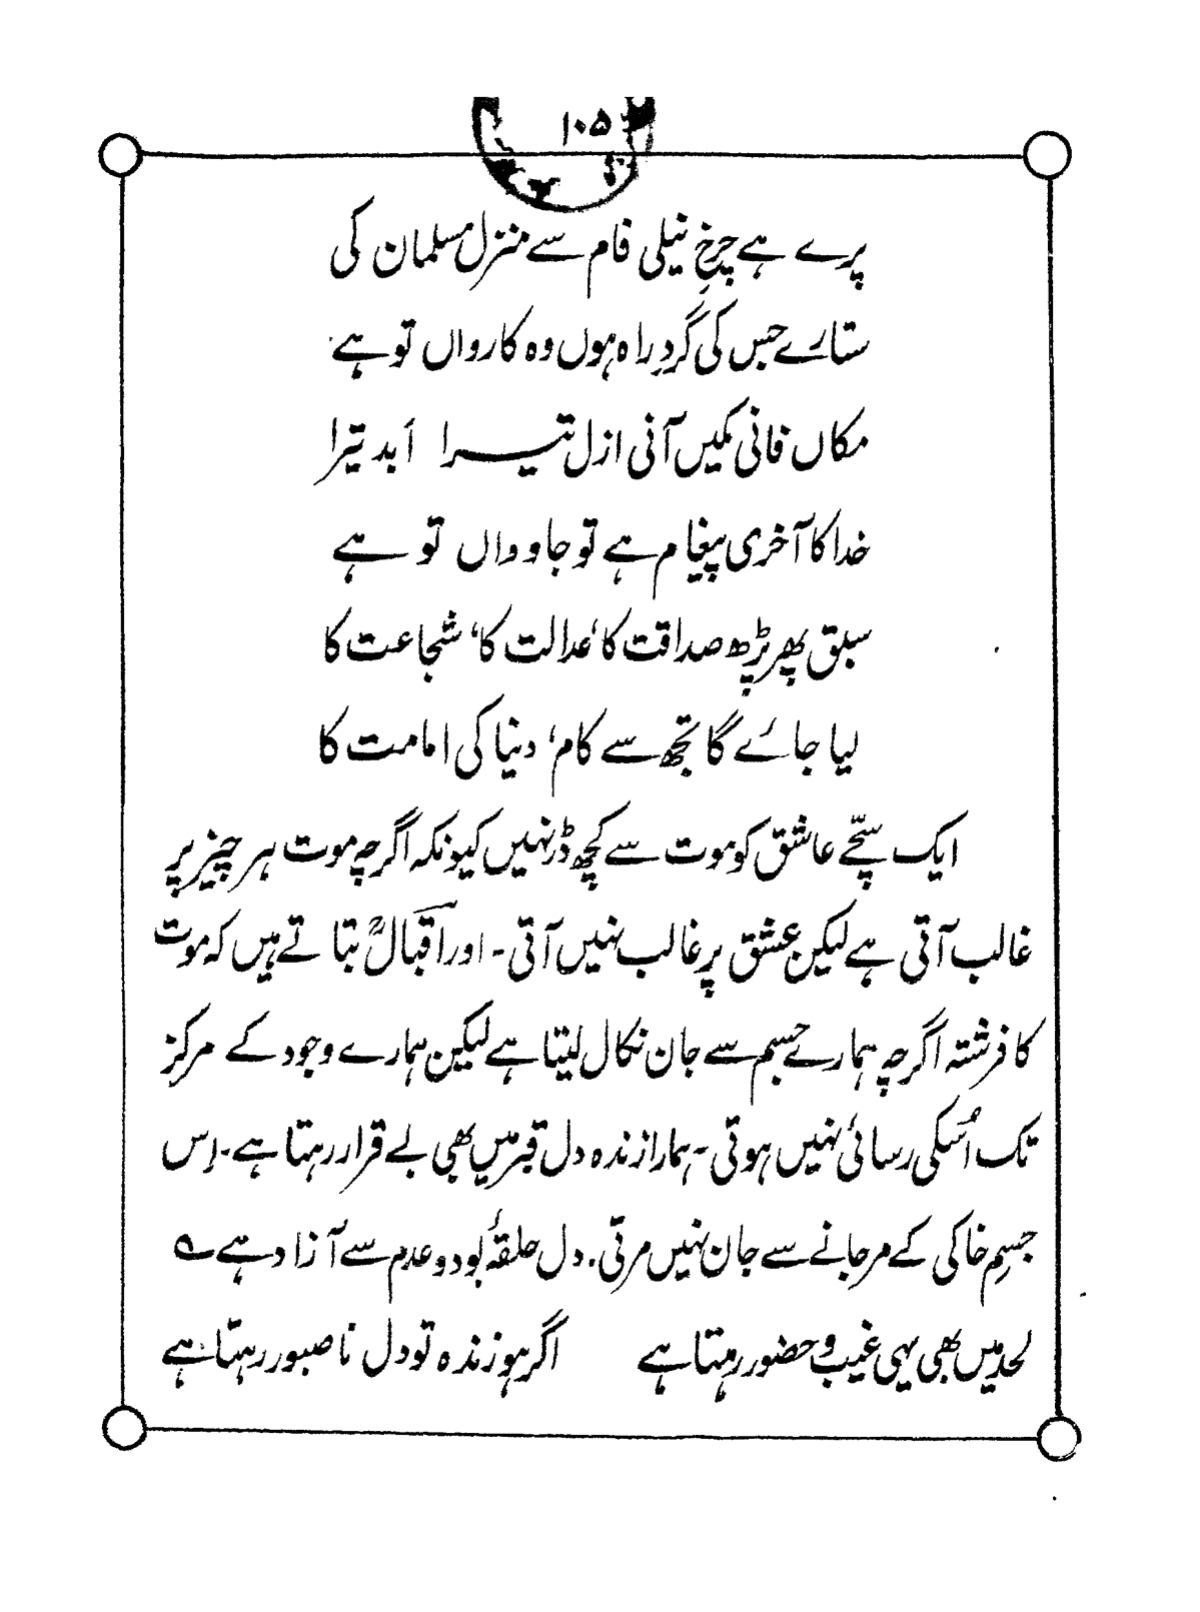 ۱۰۵
پرے ہے چرخِ نیلی فام سے منزل مسلمان کی
ستارے جس کی گردِ راہ ہوں وہ کارواں تو ہے
مکاں فانی مکیں آنی ازل تیرا اَبد تیرا
خدا کا آخری پیغام ہے تو جاوداں تو ہے
سبق پھر پڑھ صداقت کا، عدالت کا، شجاعت کا
لیا جائے گا تجھ سے کام، دنیا کی امامت کا
ایک سچّے عاشق کو موت سے کچھ ڈر نہیں کیونکہ اگرچہ موت ہر چیز پر
غالب آتی ہے لیکن عشق پر غالب نہیں آتی۔ اور اقبالؒ بتاتے ہیں کہ موت
کا فرشتہ اگرچہ ہمارے جسم سے جان نکال لیتا ہے لیکن ہمارے وجود کے مرکز
تک اُسکی رسائی نہیں ہوتی۔ ہمارا زندہ دل قبر میں بھی بے قرار رہتا ہے۔ اِس
جسمِ خاکی کے مر جانے سے جان نہیں مرتی۔ دل حلقۂ بود و عدم سے آزاد ہے ؎
لحد میں بھی یہی غیب و حضور رہتا ہے اگر ہو زندہ تو دل ناصبور رہتا ہے